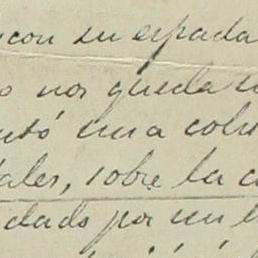 con su espada
o nos queda
una col
tales, sobre la c
dado por un